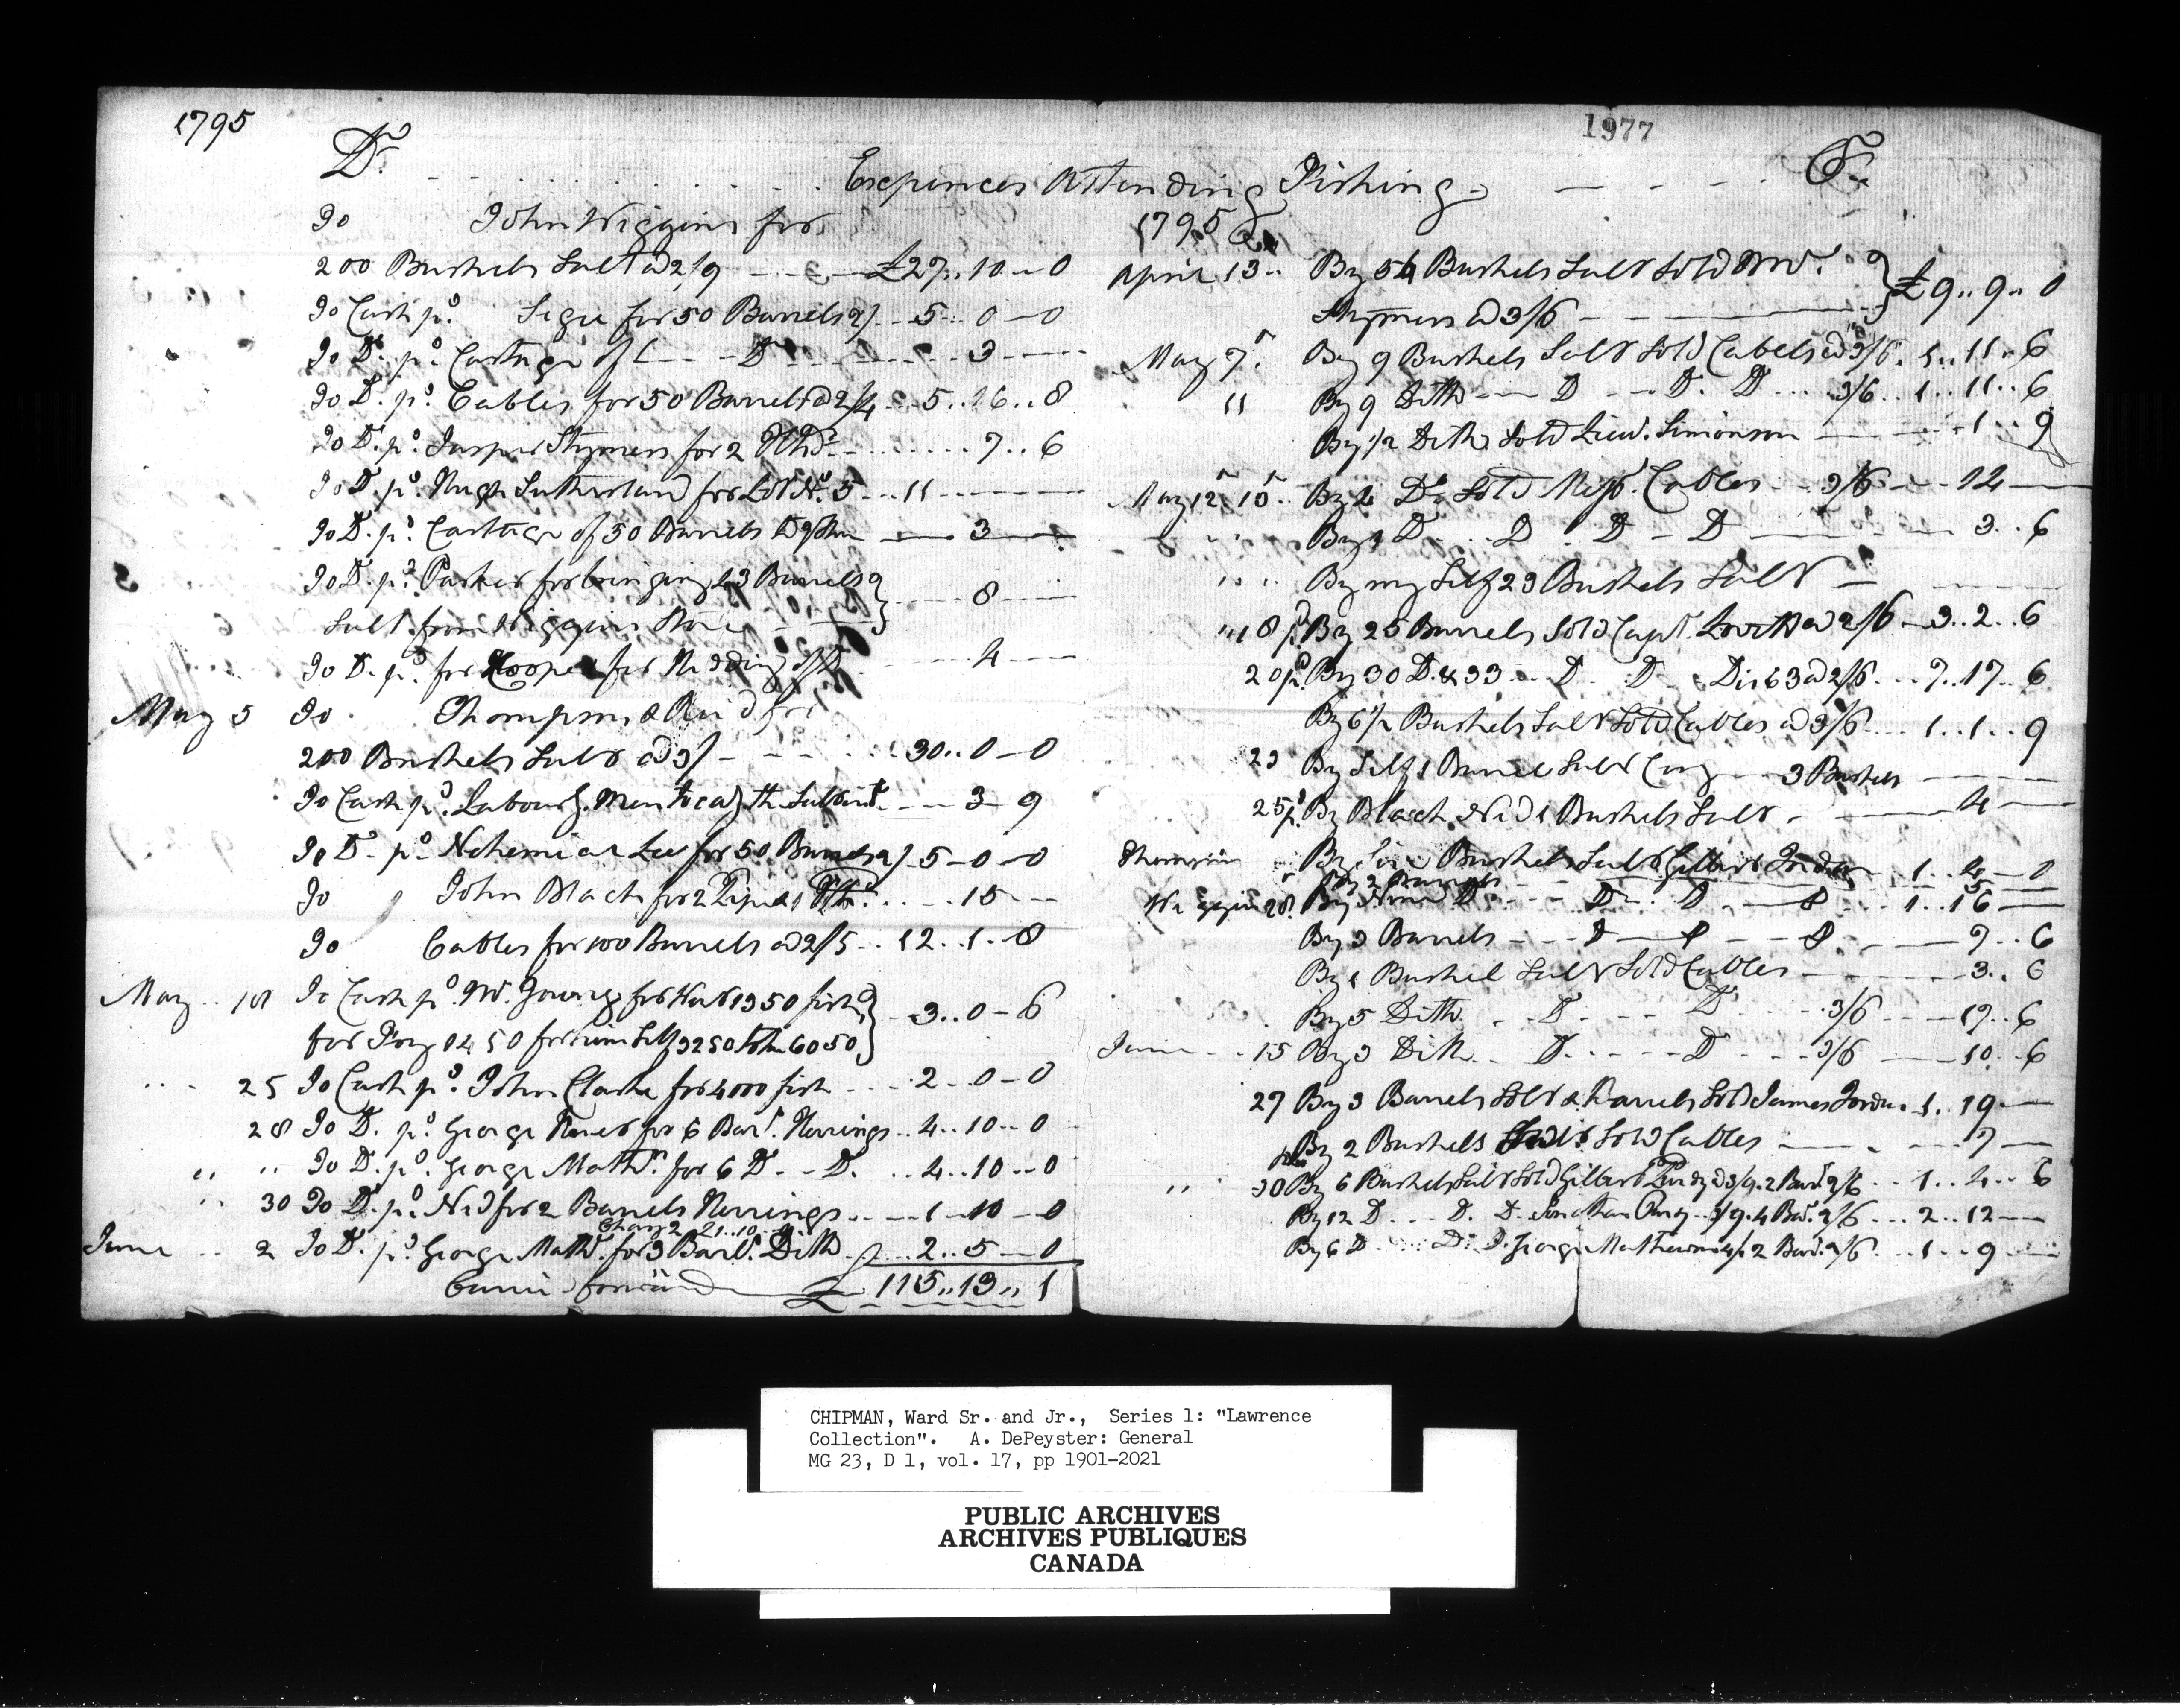 1795
1977
Dr. Expences Attending Fishing Cr.
To John Wiggins for
200 Bushels Salt @ 2/9 £27..10-0
To Cash pd. Segee for 50 Barrels 2/ 5..0-0
To Do. pd. Cartage of Do 3
To Do. pd. Cables for 50 Barrels @ 2/4 5..16..8
To Do. pd. Jasper Stymers for 2 Hhds. 7..6
To Do. pd. Hugh Sutherland for Lot No. 5 11
To Do. pd. Cartage of 50 Barrels 3
To Do. pd. Parker for bringing 23 Barrels
Salt from Wiggins Store 8
To Do. pd. for Cooper for Heading of Do 4
May 5 To Thompson & Reid for
200 Bushels Salt @ 3/ 30..0-0
To Cash pd. Labourg. Men to 3-9
To Do. pd. Nehemiar Lee for 50 Barrels 2/ 5-0-0
To John Black for 2 Pipes 1 Hhd. 15
To Cables for 100 Barrels @ 2/5 12..1..8
May 18 To Cash pd. Wm. Young for 1350 fish
for 1450 for him Self 3250 6050 3..0-6
25 To Cash pd. John Clarke for 4000 fish 2-0-0
28 To Do. pd. George for 6 Barl. Herrings 4..10..0
" " To Do. pd. George Mathr. for 6 Do. Do. 4..10..0
" 30 To Do. pd. Ned for 2 Barrels Herrings 1-10-0
June 2 To Do. pd. George Mathr. for 3 Barl. Ditto 2..5-0
Carried forward £115,,13,,1
1795
April 13 By 54 Bushels Salt Sold Wm.
Stymers @ 3/6 £9..9..0
May 7 By 9 Bushels Salt Sold Cabels @ 3/6 1..11..6
11 By 9 Ditto D D. D 3/6 1..11..6
By 1/2 Ditto Sold Lieu. Simonson 1..9
May 12 15 By 4 Do. Sold Messr. Cables 3/6 14
By 1 D D D D 3..6
" " By my Self 23 Bushels Salt
" 18 pd. By 25 Barrels Sold Capt. @ 2/6 3..2..6
20 pd. By 30 D. & 33 D D Do is 63 @ 2/6 7..17..6
By 6 1/2 Bushels Salt Sold Cables @ 3/6 1..1..9
23 By Self 1 Barrel Salt 3 Bushels
25 pd. By Black Ned 1 Bushels Salt 4
Thompson By Six Bushels Salt Gilbert 1..4..0
By 2 Barrels 5
Wiggins 28 By Nine D D D 1..16
By 3 Barrels 7..6
By 1 Bushel Salt Sold Cables 3..6
By 5 Ditto D. D 3/6 17..6
June 15 By 3 Ditto D D 3/6 10..6
27 By 3 Barrels Salt & Barrels Sold James 1..19
By 2 Bushels Salt Sold Cables 7
" 30 By 6 Bushels Salt Sold Gilbert Purdy @ 3/9. 2 Barl. 2/6 1..4..6
By 12 D D. D. 3/9. 4 Barl. 2/6 2..12
By 6 D D. D. George Mathewson 4/. 2 Barl. 2/6 1..9
CHIPMAN, Ward Sr. and Jr., Series 1: "Lawrence
Collection". A. DePeyster: General
MG 23, D 1, vol. 17, pp 1901-2021
PUBLIC ARCHIVES
ARCHIVES PUBLIQUES
CANADA